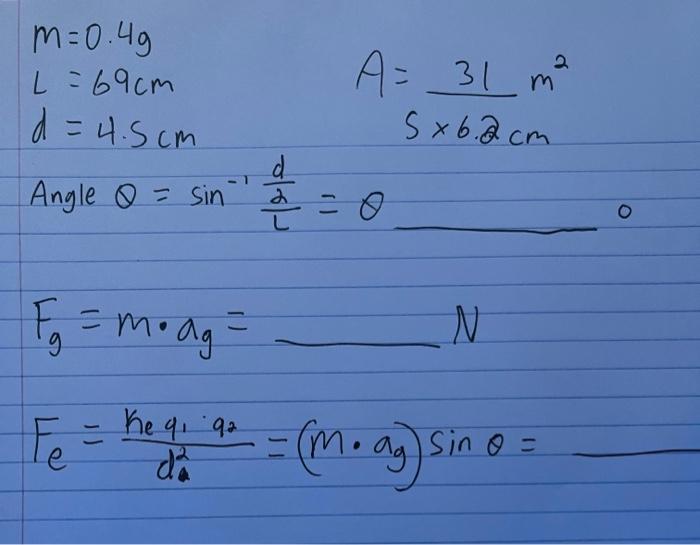 m=0.4g
L = 69cm
d = 4.5cm
A = 31 m²
5 x 6.2 cm
Angle θ = sin⁻¹ d/2/L = θ ______ °
Fg = m • ag = ______ N
Fe = Ke q₁ · q₂ / d² = (m • ag) sin θ = ______